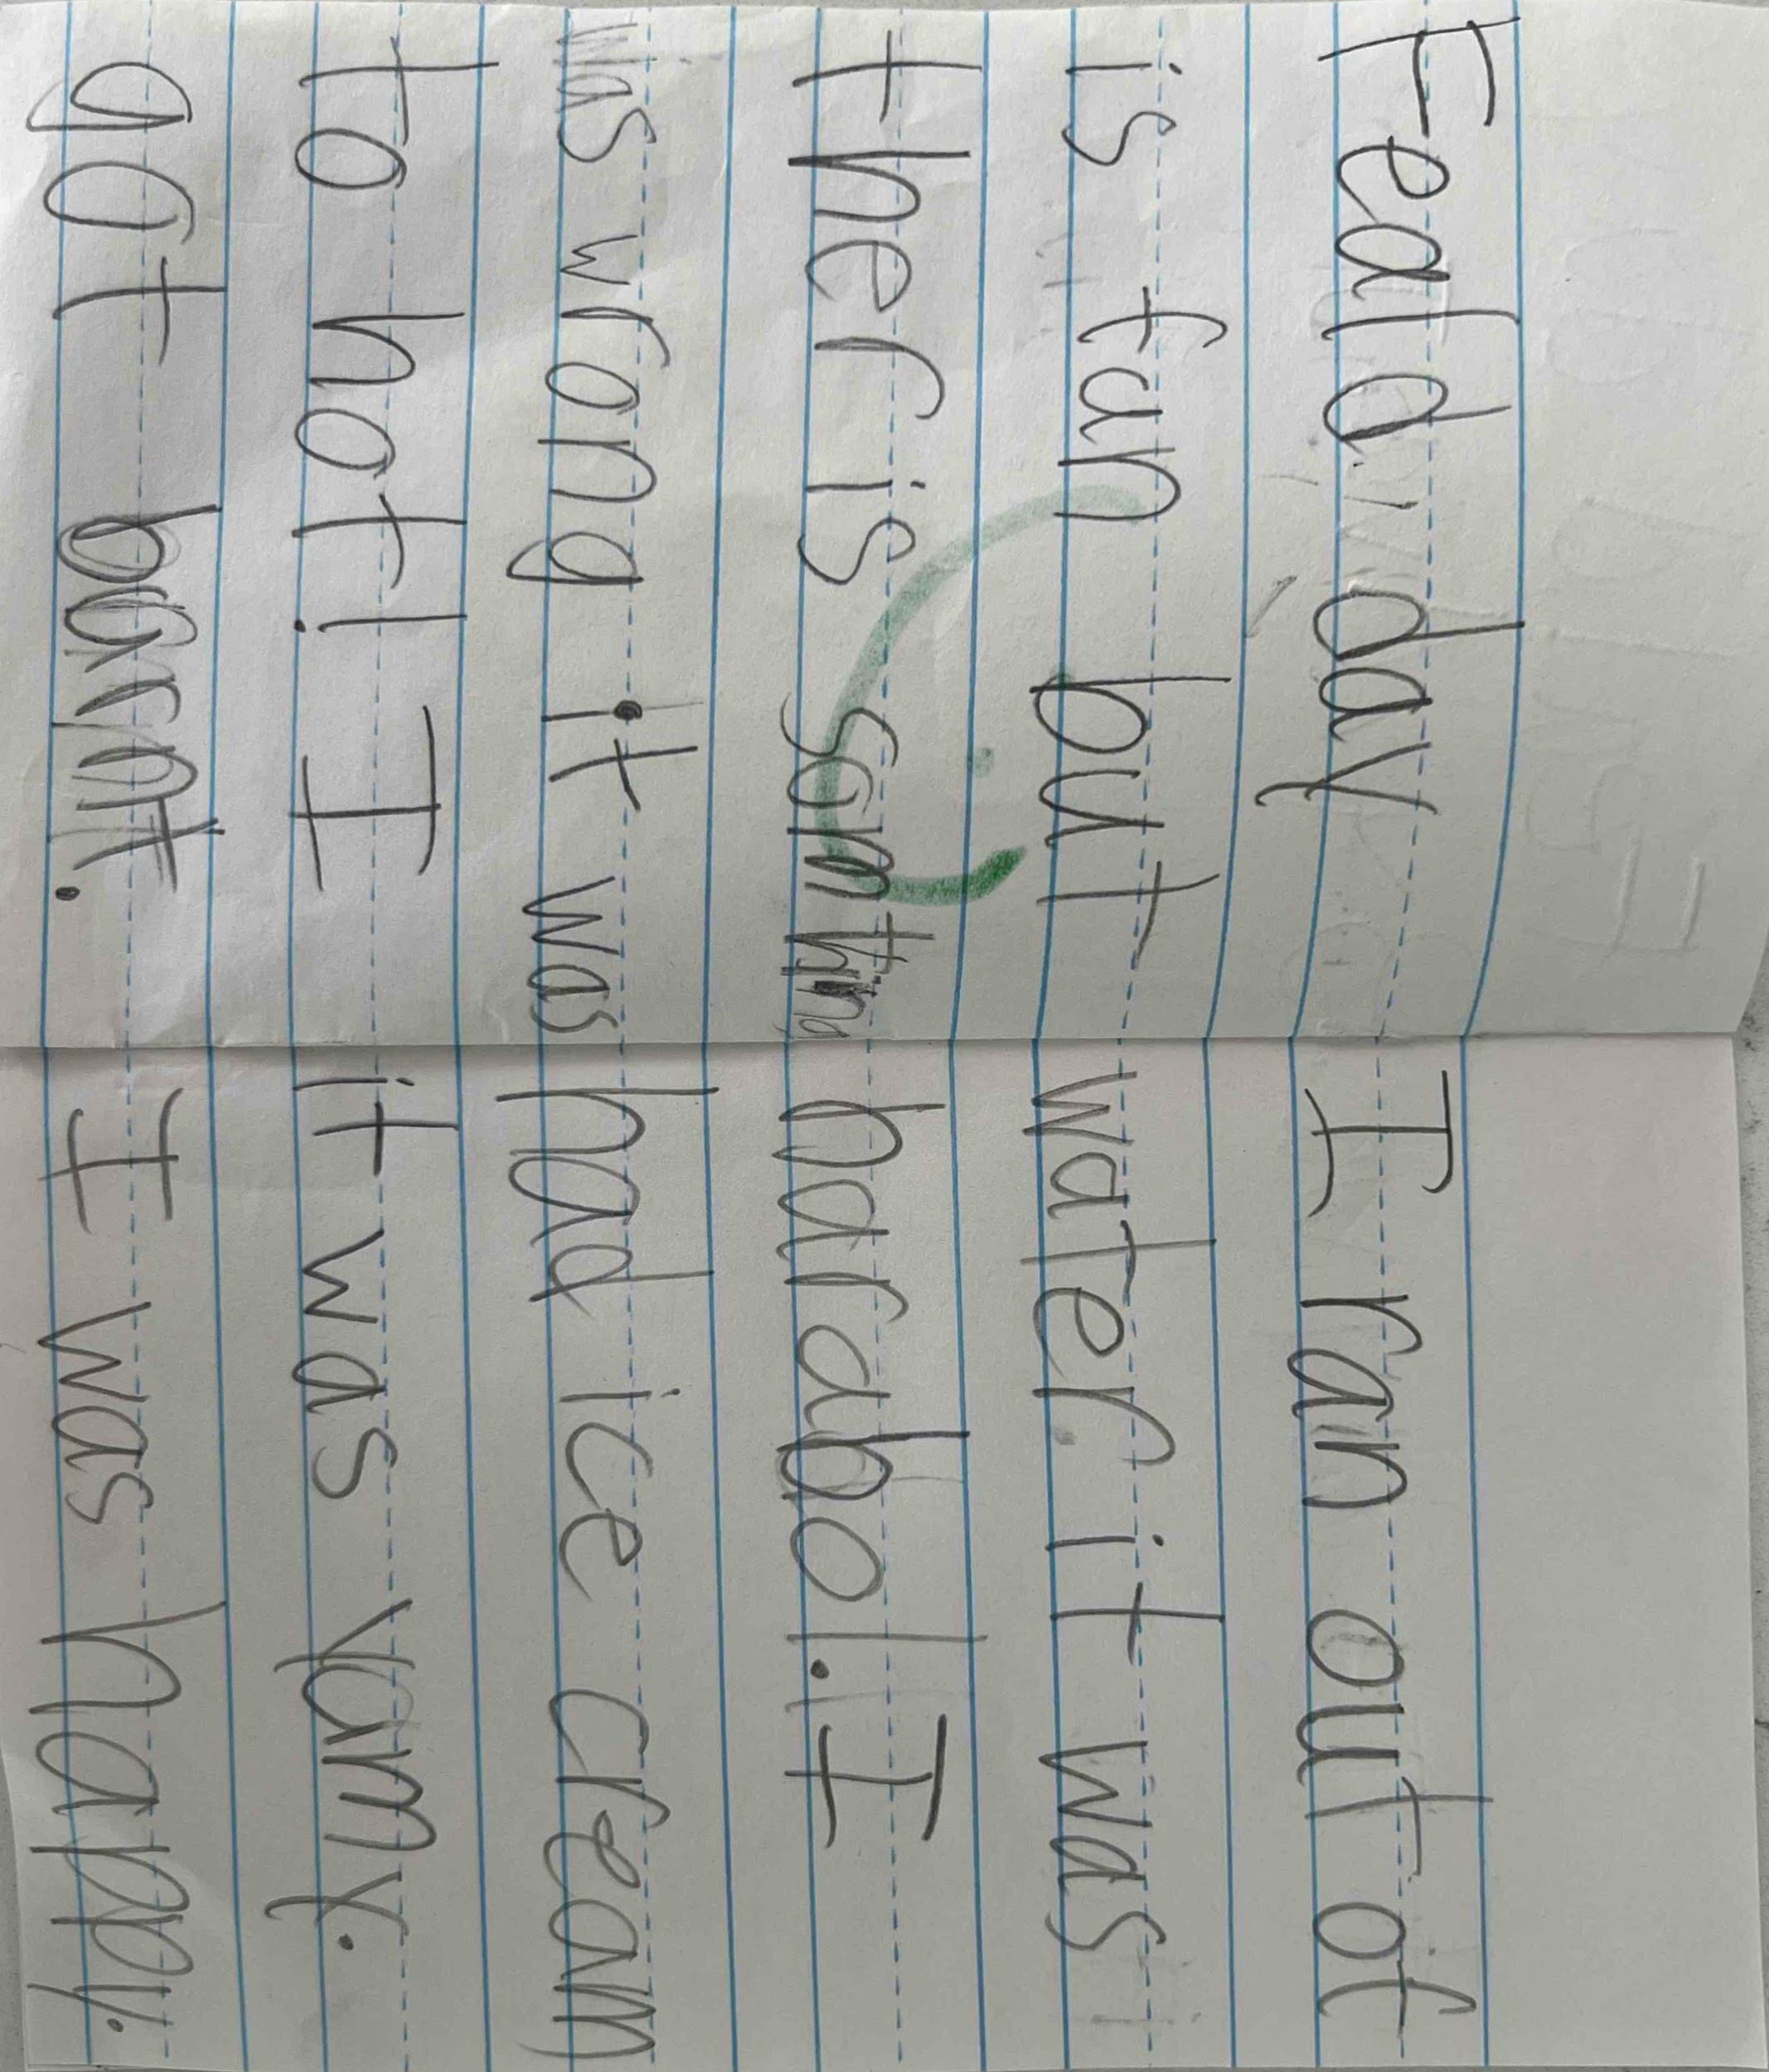 Feald day
is fun but
ther is somthing
was wrong it was
to hot! I
got burnt.
I ran out of
water it was
harabol. I
had ice cream
it was yumy.
I was happy.